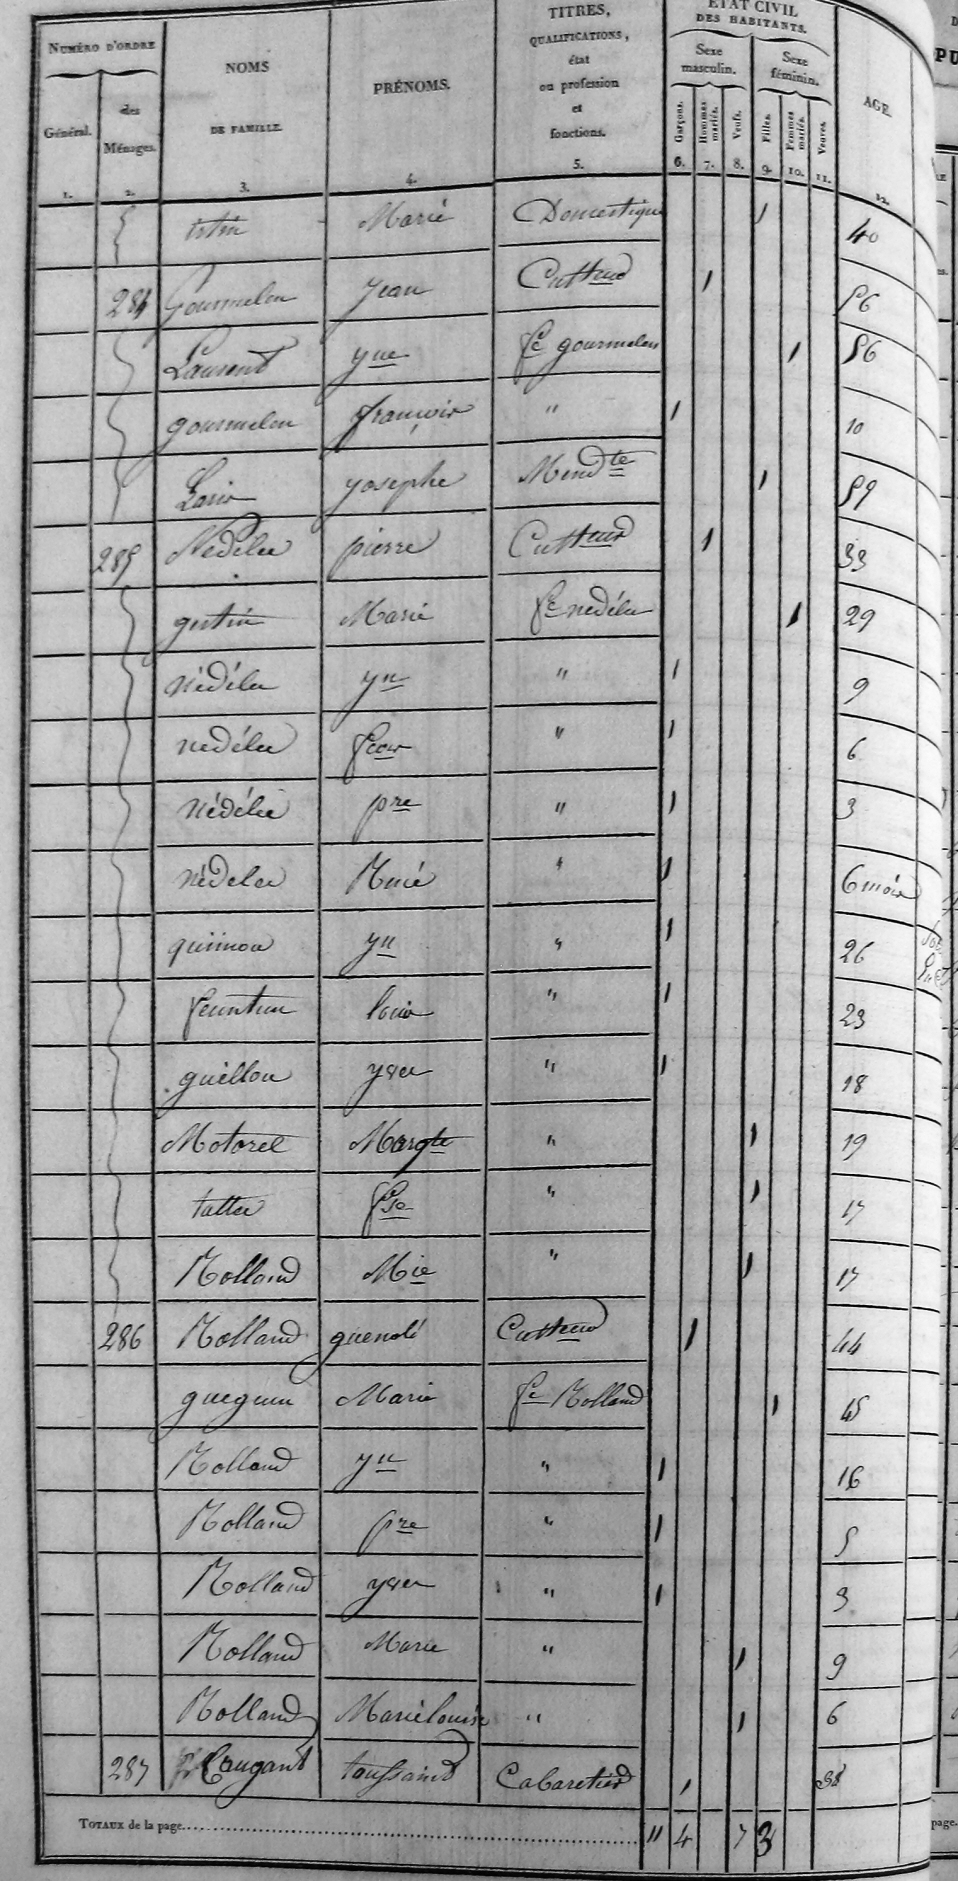 NUMÉRO D'ORDRE
Général.
des Ménages.
NOMS
DE FAMILLE.
PRÉNOMS.
TITRES,
QUALIFICATIONS,
état
ou profession
et
fonctions.
ÉTAT CIVIL
DES HABITANTS.
Sexe masculin.
Sexe féminin.
Garçons.
Hommes mariés.
Veufs.
Filles.
Femmes mariés.
Veuves.
AGE.
1. 2. 3. 4. 5. 6. 7. 8. 9. 10. 11. 12.
Marie Domestique 40
284 Gourmelen Jean Cultteur 56
Laurent yve fe gourmelen 56
gourmelen françois " 10
Laric yosephe Mendte 59
285 Nédélec pierre Cultteur 33
gestin Marie fe nedélec 29
nédélec yn " 9
nedélec fcois " 6
nédélec pre " 3
nédelec René " 6 mois
yn " 26
feunteun louis " 23
guillou yves " 18
Motorel Margte " 19
fse " 17
Rolland Mie " 17
286 Rolland guenolé Cultteur 44
gueguen Marie fe Rolland 45
Rolland yn " 16
Rolland pre " 5
Rolland yves " 3
Rolland Marie " 9
Rolland Marie louise " 6
287 Caugant toussaint Cabaretier 38
TOTAUX de la page " 4 7 3